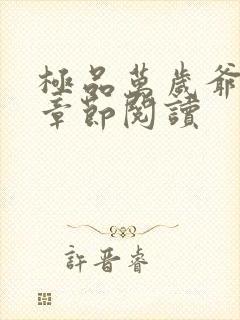 極品萬歲爺
章節閱讀
許晉睿